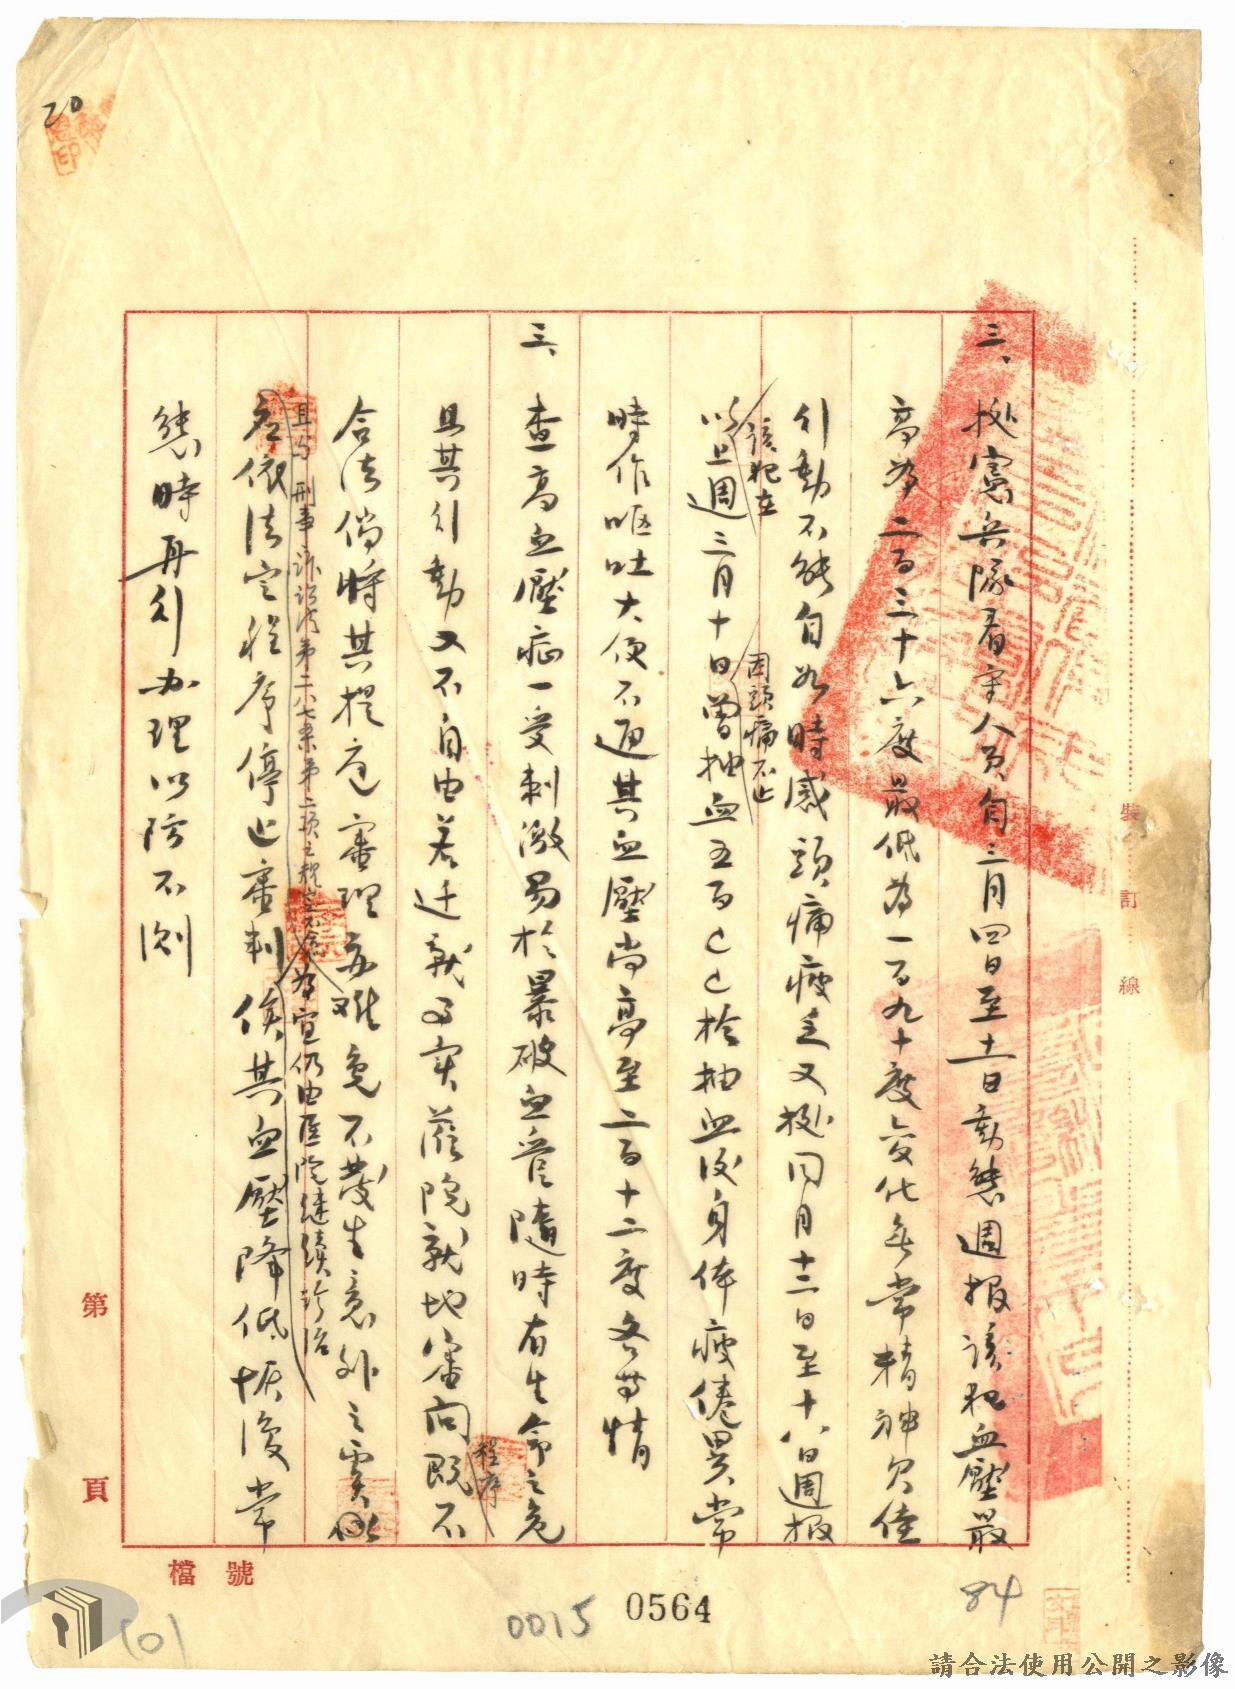 20
三、
据憲兵隊看守人員自三月四日至十一日動態週报該犯血壓最
高為二百三十六度最低為一百九十度变化無常精神欠佳
行動不能自如時感頭痛疲乏又据同月十二日至十八日週报
該犯在
因頭痛不止
以上週三月十日曾抽血五百CC於抽血後身体疲倦異常
時作嘔吐大便不通其血壓尚高至二百十二度各等情
三、
查高血壓症一受刺激易於暴破血管隨時有生命之危
程序
且其行動又不自由若迁就事实蒞院就地審問既不
合法倘將其提庭審理亦难免不發生意外之虞似
且與刑事訴訟法第二八七条第二項之規定不合
為宜仍由医院继续診治
应依法定程序停止審判俟其血壓降低恢復常
態時再行办理以防不測
裝
訂
線
第
頁
檔 號
84
0015
0564
(0)
請合法使用公開之影像